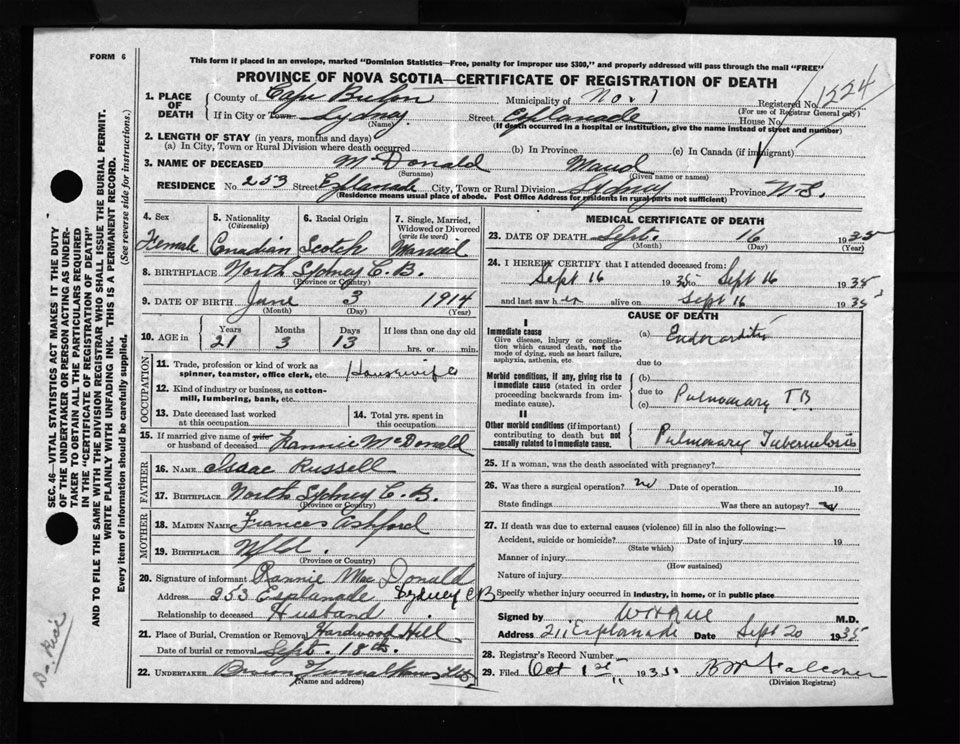 FORM 6
This form if placed in an envelope, marked "Dominion Statistics—Free, penalty for improper use $300," and properly addressed will pass through the mail "FREE"
PROVINCE OF NOVA SCOTIA—CERTIFICATE OF REGISTRATION OF DEATH
1. PLACE OF DEATH { County of Cape Breton Municipality of No. 1 Registered No. 1524
(For use of Registrar General only)
If in City or Town Sydney Street Esplanade House No.
(Name) (If death occurred in a hospital or institution, give the name instead of street and number)
2. LENGTH OF STAY (in years, months and days)
(a) In City, Town or Rural Division where death occurred (b) In Province (c) In Canada (if immigrant)
3. NAME OF DECEASED McDonald Maud
(Surname) (Given name or names)
RESIDENCE No. 253 Street Esplanade City, Town or Rural Division Sydney Province N.S.
(Residence means usual place of abode. Post Office Address for residents in rural parts not sufficient)
4. Sex Female
5. Nationality (Citizenship) Canadian
6. Racial Origin Scotch
7. Single, Married, Widowed or Divorced (write the word) Married
8. BIRTHPLACE North Sydney C.B.
(Province or Country)
9. DATE OF BIRTH June 3 1914
(Month) (Day) (Year)
10. AGE in { Years 21 Months 3 Days 13 If less than one day old hrs. or min.
OCCUPATION
11. Trade, profession or kind of work as spinner, teamster, office clerk, etc. Housewife
12. Kind of industry or business, as cotton-mill, lumbering, bank, etc.
13. Date deceased last worked at this occupation
14. Total yrs. spent in this occupation
15. If married give name of wife or husband of deceased McDonald
FATHER
16. NAME Isaac Russell
17. BIRTHPLACE North Sydney C.B.
(Province or Country)
MOTHER
18. MAIDEN NAME Frances Ashford
19. BIRTHPLACE Nfld.
(Province or Country)
20. Signature of informant Mac Donald
Address 253 Esplanade Sydney C B
Relationship to deceased Husband
21. Place of Burial, Cremation or Removal Hardwood Hill
Date of burial or removal Sept. 18th.
22. UNDERTAKER Funeral
(Name and address)
MEDICAL CERTIFICATE OF DEATH
23. DATE OF DEATH Sept. 16 1935
(Month) (Day) (Year)
24. I HEREBY CERTIFY that I attended deceased from:
Sept 16 1935 to Sept 16 1935
and last saw her alive on Sept 16 1935
CAUSE OF DEATH
I
Immediate cause
Give disease, injury or complication which caused death, not the mode of dying, such as heart failure, asphyxia, asthenia, etc.
(a) Endocarditis
due to
Morbid conditions, if any, giving rise to immediate cause (stated in order proceeding backwards from immediate cause).
(b)
due to
(c) Pulmonary T.B.
II
Other morbid conditions (if important) contributing to death but not causally related to immediate cause.
Pulmonary Tuberculosis
25. If a woman, was the death associated with pregnancy?
26. Was there a surgical operation? no Date of operation 19
State findings Was there an autopsy? no
27. If death was due to external causes (violence) fill in also the following:—
Accident, suicide or homicide? Date of injury 19
(State which)
Manner of injury
(How sustained)
Nature of injury
Specify whether injury occurred in industry, in home, or in public place
Signed by M.D.
Address 211 Esplanade Date Sept 20 1935
28. Registrar's Record Number
29. Filed Oct 1st 1935 Falconer
(Division Registrar)
SEC. 46—VITAL STATISTICS ACT MAKES IT THE DUTY
OF THE UNDERTAKER OR PERSON ACTING AS UNDER-
TAKER TO OBTAIN ALL THE PARTICULARS REQUIRED
IN THE "CERTIFICATE OF REGISTRATION OF DEATH"
AND TO FILE THE SAME WITH THE DIVISION REGISTRAR WHO SHALL ISSUE THE BURIAL PERMIT.
WRITE PLAINLY WITH UNFADING INK. THIS IS A PERMANENT RECORD.
Every item of information should be carefully supplied. (See reverse side for instructions.)